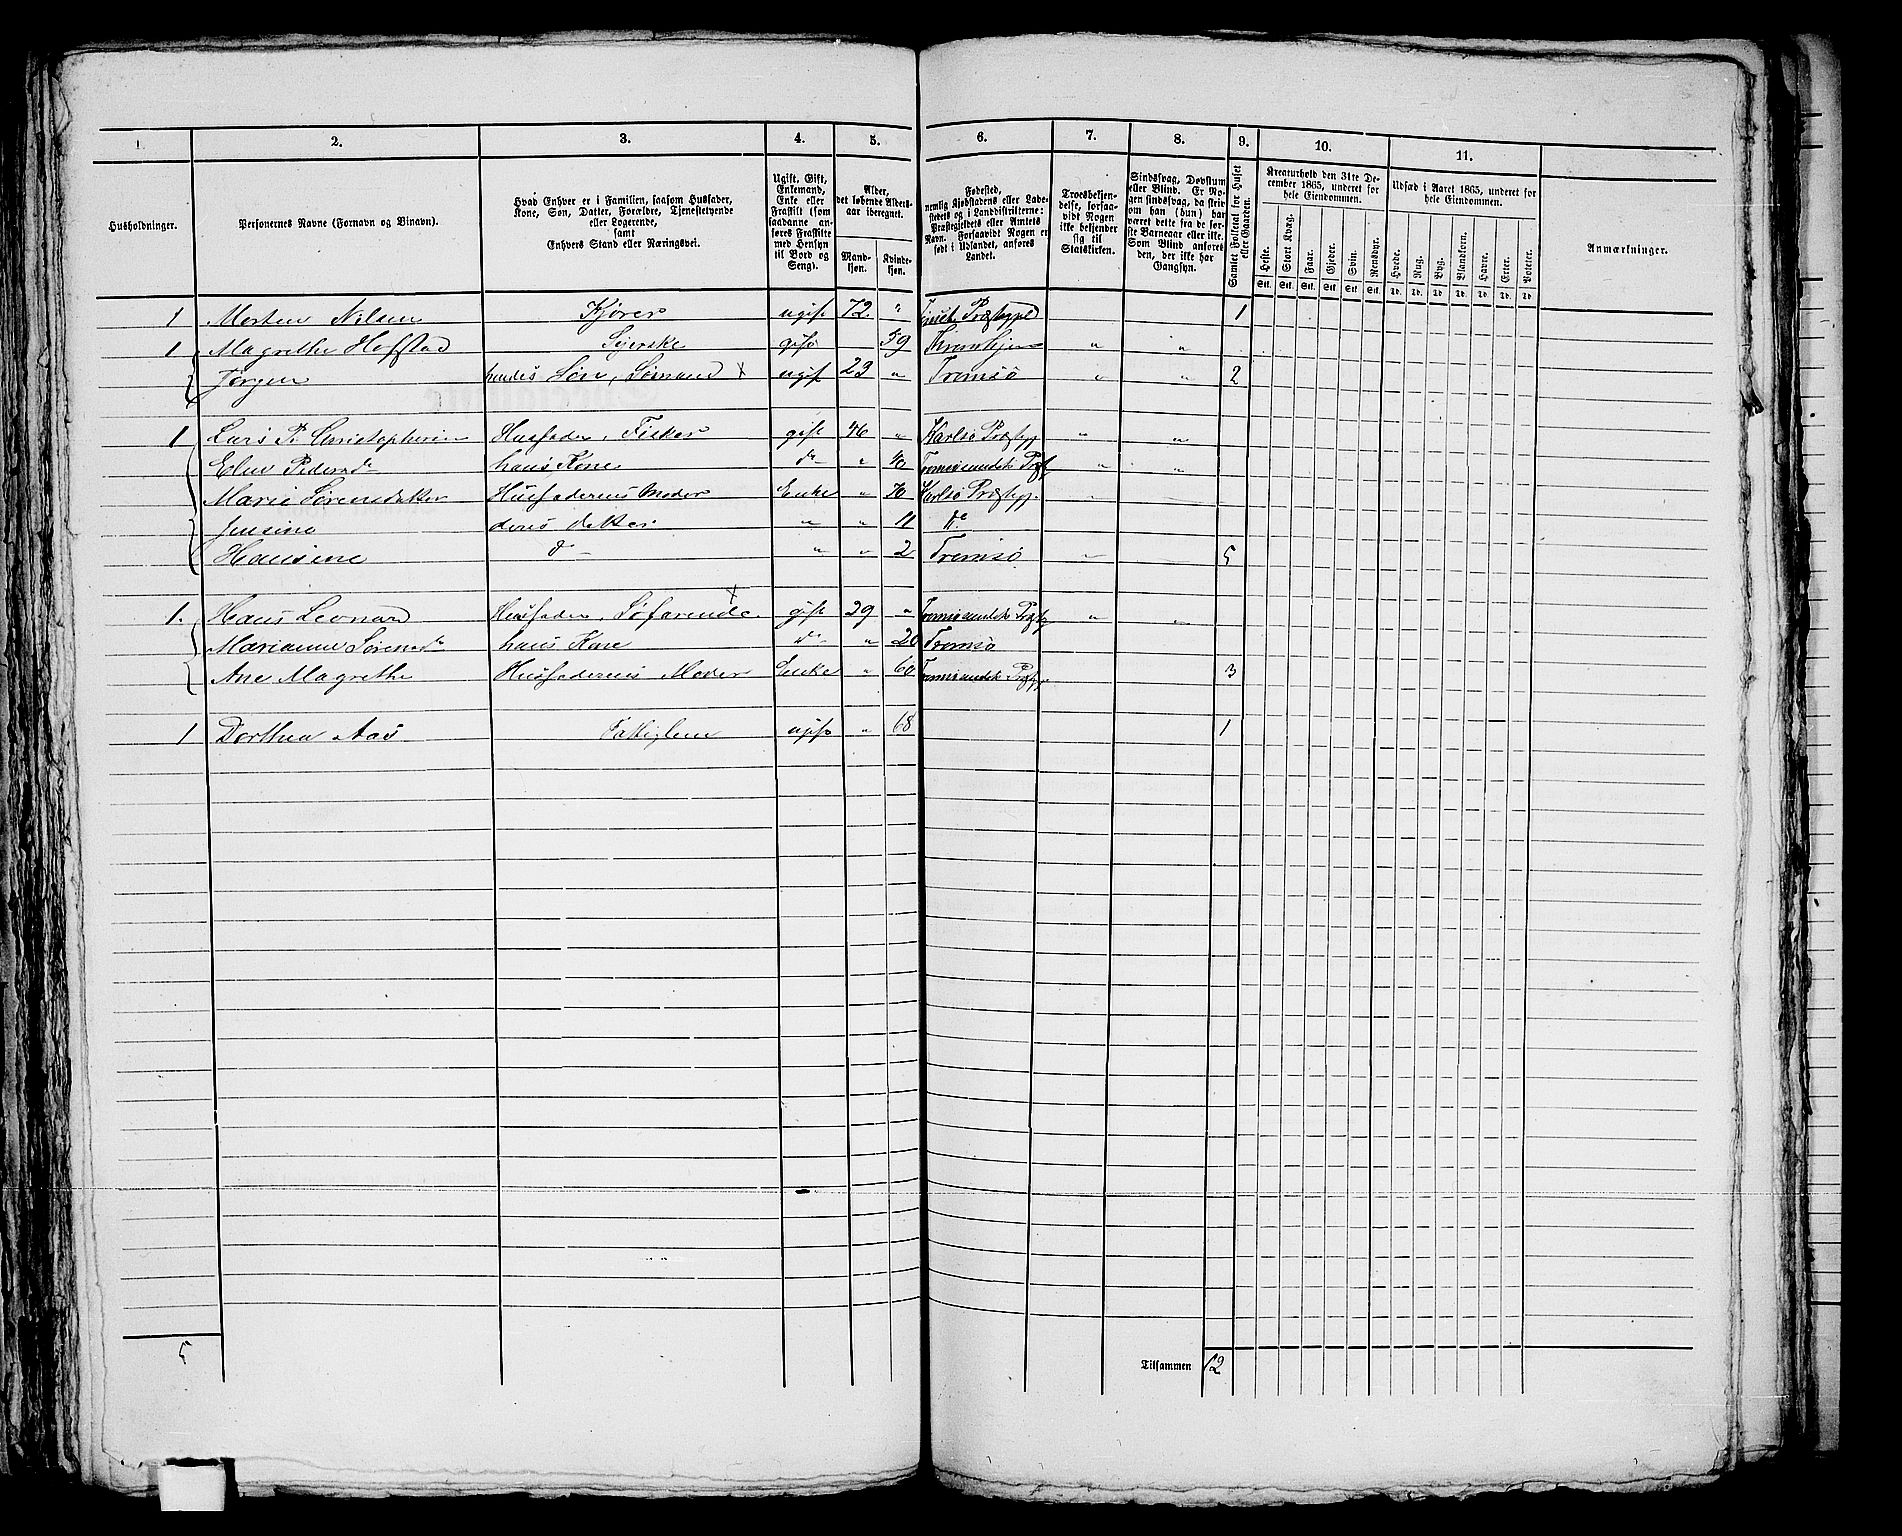 1 2. 3. 4. 5. 6. 7. 8. 9. 10. 11.
Husholdninger.
Personernes Navne (Fornavn og Binavn).
Hvad Enhver er i Familien, saasom Husfader,
Kone, Søn, Datter, Forældre, Tjenestetyende
eller Logerende,
samt
Enhvers Stand eller Næringsvei.
Ugift, Gift,
Enkemand,
Enke eller
Fraskilt (som
saadanne an-
føres Fraskilte
med Hensyn
til Bord og
Seng).
Alder,
det løbende Alders-
aar iberegnet.
Mand-
kjøn.
Kvinde-
kjøn.
Fødested,
nemlig Kjøbstadens eller Lade-
stedets og i Landdistrikterne:
Præstegjeldets eller Amtets
Navn. Forsaavidt Nogen er
født i Udlandet, anføres
Landet.
Troesbekjen-
delse, forsaa-
vidt Nogen
ikke bekjender
sig til
Statskirken.
Sindssvag, Døvstum
eller Blind. Er No-
gen sindssvag, da skriv
om han (hun) har
været dette fra de før-
ste Barneaar eller ikke.
Som Blind anføres
den, der ikke har
Gangsyn.
Samlet Folketal for Huset
eller Gaarden.
Kreaturhold den 31te De-
cember 1865, underet for
hele Eiendommen.
Heste. Stort Kvæg. Faar. Gjeder. Sviin. Rensdyr.
Stk. Stk. Stk. Stk. Stk. Stk.
Udsæd i Aaret 1865, underet for
hele Eiendommen.
Hvede. Rug. Byg. Blandkorn. Havre. Erter. Poteter.
Td. Td. Td. Td. Td. Td. Td.
Anmærkninger.
1 Morten Nilsen Kjører ugift 72 " Præstegjeld 1
1 Magrethe Hofstad Sejerske gift 59 " "
Jørgen hendes Søn, Sømand x ugift 23 " Tromsø " " 2
1 Lars P. Christophersen Husfader, Fisker gift 46 " Karlsø Præstegj " "
Elen Pedersd hans Kone do " 40 Tromsøsundets Prgj " "
Marie Sørensdatter Husfaderens Moder Enke " 70 Karlsø Præstegj. "
Jensine deres datter " " 11 do
Hansine do " " 2 Tromsø " 5
1. Hans Leonard Husfader, Søfarende x gift 29 " Tromsøsundets Prstgj " "
Marianne Sørensd hans Kone do " 20 Tromsø
Ane Magrethe Husfaderens Moder Enke " 60 Tromsøsundets Prstgj 3
1 Dorthea Aas Fattiglem ugift " 68 1
5
Tilsammen 12